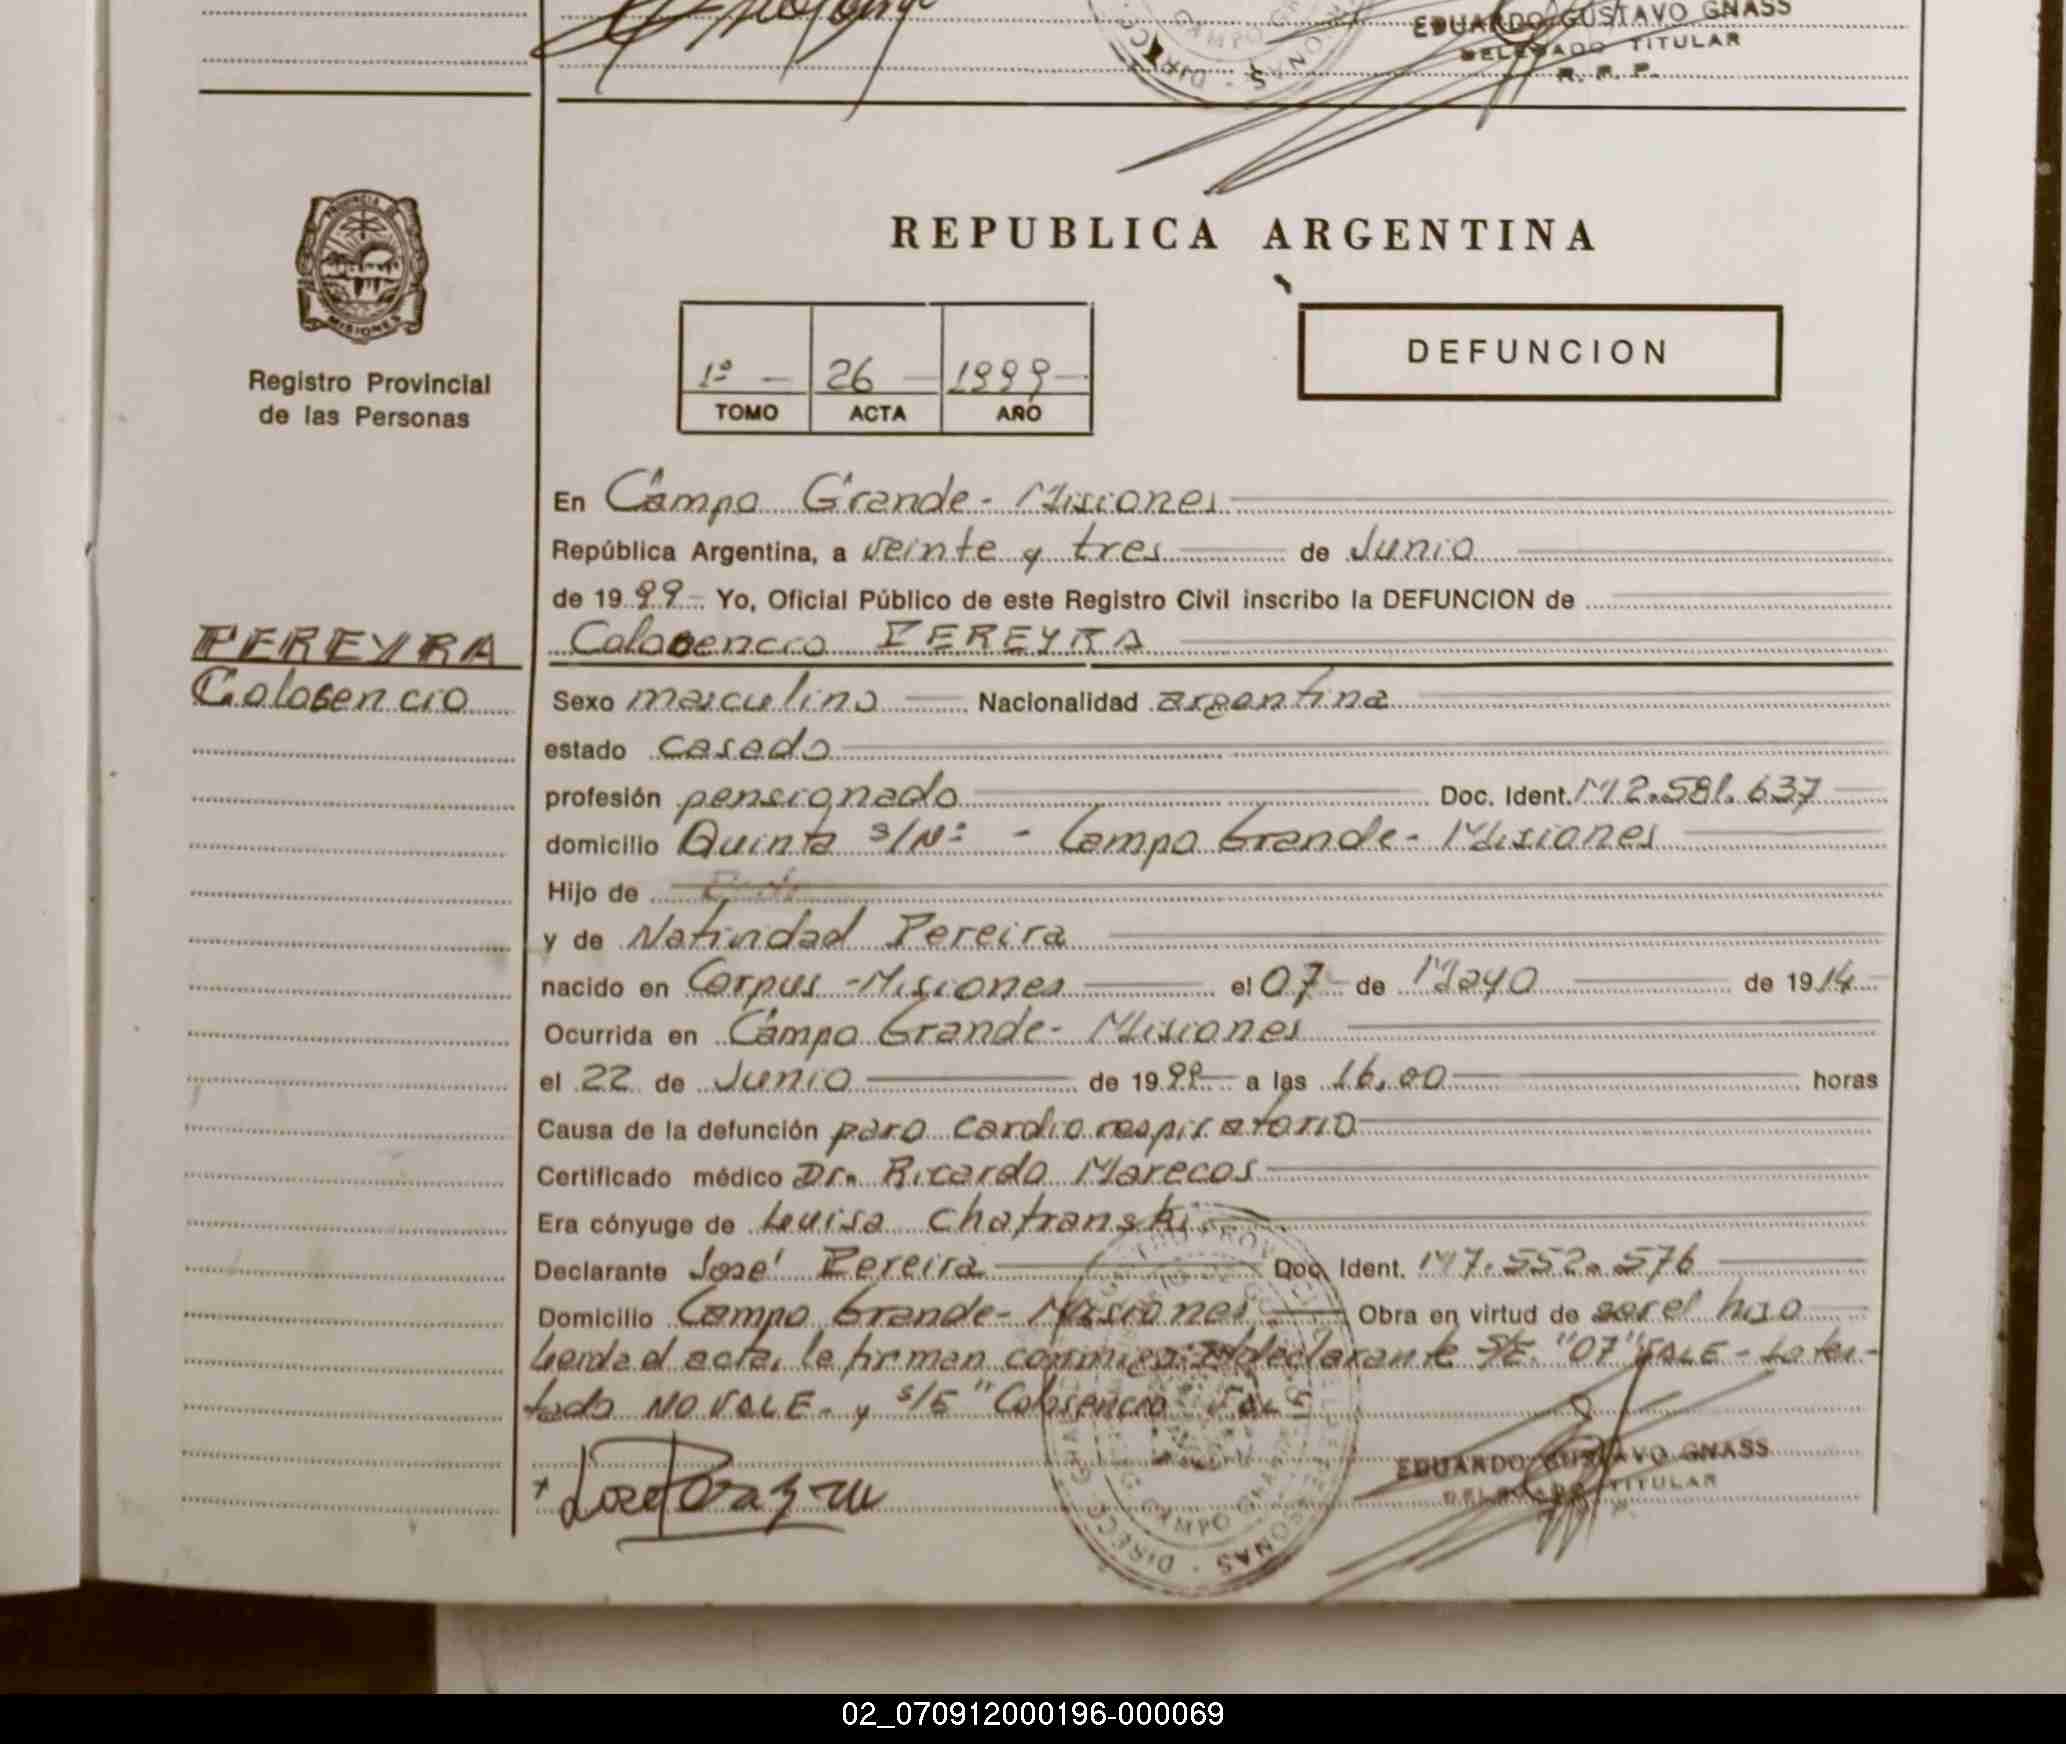 EDUARDO GUSTAVO GNASS
DELEGADO TITULAR
R. P. P.
PROVINCIA DE
MISIONES
Registro Provincial
de las Personas
REPUBLICA ARGENTINA
1º - 26 - 1999 -
TOMO ACTA AÑO
DEFUNCION
En Campo Grande - Misiones
República Argentina, a veinte y tres de Junio
de 1999 - Yo, Oficial Público de este Registro Civil inscribo la DEFUNCION de
PEREYRA
Colosencio
Colosencio PEREYRA
Sexo masculino Nacionalidad argentina
estado casado
profesión pensionado Doc. Ident. M 2.581.637
domicilio Quinta s/Nº - Campo Grande - Misiones
Hijo de
y de Natividad Pereira
nacido en Corpus - Misiones el 07 de Mayo de 1914
Ocurrida en Campo Grande - Misiones
el 22 de Junio de 1999 a las 16,00 horas
Causa de la defunción paro cardio respiratorio
Certificado médico Dr. Ricardo Marecos
Era cónyuge de Luisa Chatranski
Declarante José Pereira Doc. Ident. M7.552.576
Domicilio Campo Grande - Misiones Obra en virtud de ser el hijo
Leida el acta, la firman conmigo el declarante S/E. "07" VALE - Lo tes-
tado NO VALE - y s/E "Colosencio VALE
EDUARDO GUSTAVO GNASS
DELEGADO TITULAR
CAMPO GRANDE
02_070912000196-000069